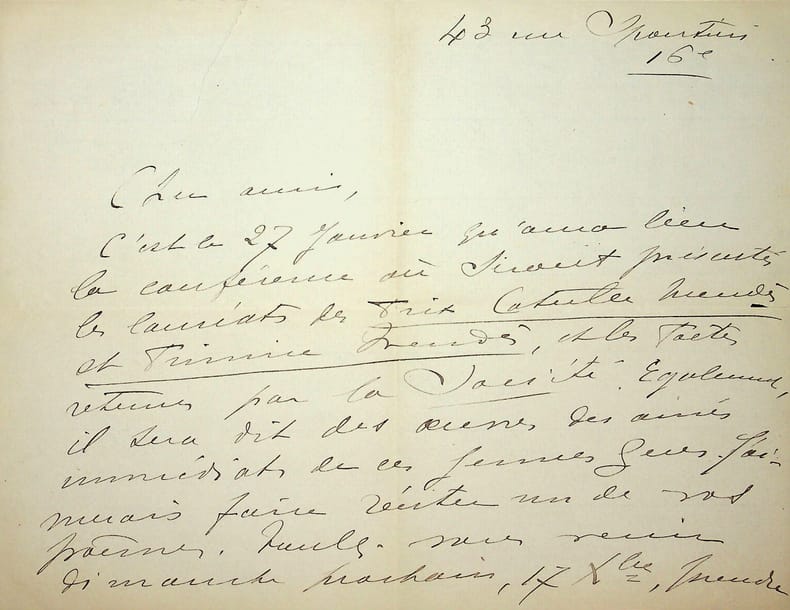 43 rue Spontini
16e
Cher ami,
C'est le 27 Janvier qu'aura lieu
la conférence où seront présentés
les lauréats des Prix Catulle Mendès
et Primice Mendès, et les Poètes
retenus par la Société. Egalement,
il sera dit des œuvres des aînés
immédiats de ces jeunes gens. J'ai-
merais faire réciter un de vos
poèmes. Voulez-vous venir
dimanche prochain, 17 Xbre, prendre